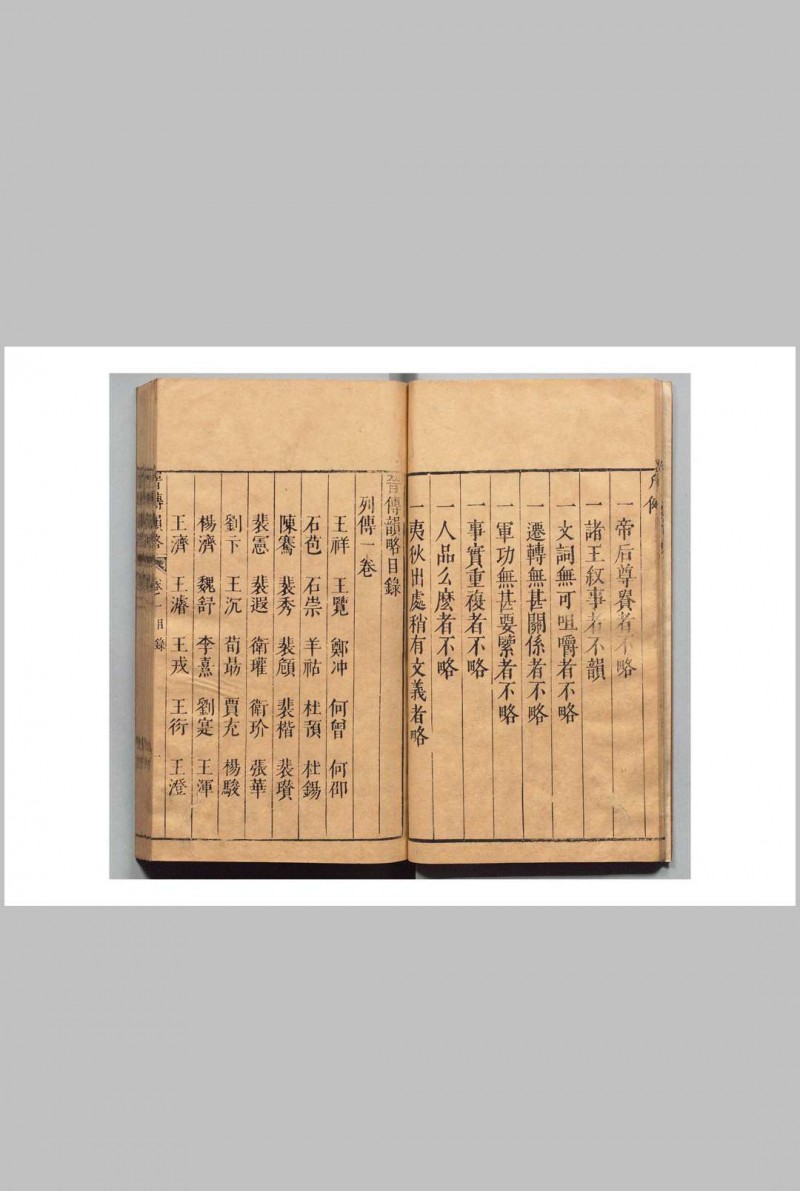 凡例
一帝后尊賽者不略
一諸王叙事者不韻
一文詞無可咀嚼者不略
一遷轉無甚關係者不略
一軍功無甚要緊者不略
一事實重複者不略
一人品么麽者不略
一夷狄出處稍有文義者略
晉傳韻略目錄
列傳一卷
王祥 王覽 鄭冲 何曾 何邵
石苞 石崇 羊祜 杜預 杜錫
陳騫 裴秀 裴頠 裴楷 裴瓚
裴憲 裴遐 衛瓘 衛玠 張華
劉卞 王沉 荀勗 賈充 楊駿
楊濟 魏舒 李熹 劉寔 王渾
王濟 王濬 王戎 王衍 王澄
晉傳韻略 卷一目錄 一